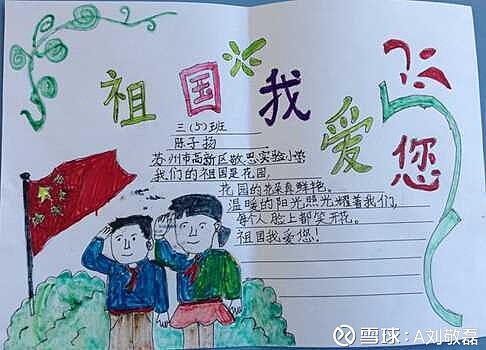 祖国我爱您
三(5)班
陈子扬
苏州市高新区敬恩实验小学
我们的祖国是花园,
花园的花朵真鲜艳。
温暖的阳光照光耀着我们,
每个人脸上都笑开花。
祖国我爱您!
雪球:A刘敬磊